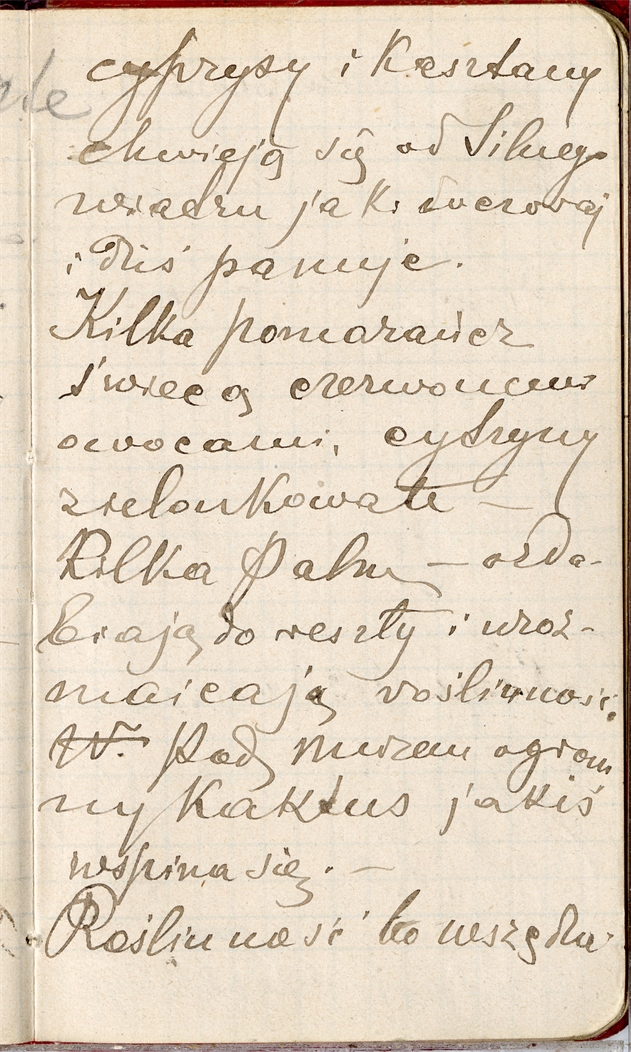 cyprysy i Kasztany
chwieją się od Silnego
wiadru jaki wczoraj
i dziś panuje.
Kilka pomarańcz
świecą czerwonemi
owocami, cytryny
zielonkowate —
Kilka Palm — ozda-
biają do reszty i uroz-
maicają roślinność.
W. Pod murem ogrom
ny Kaktus jakiś
wspina się. —
Roślinność to wszędzie